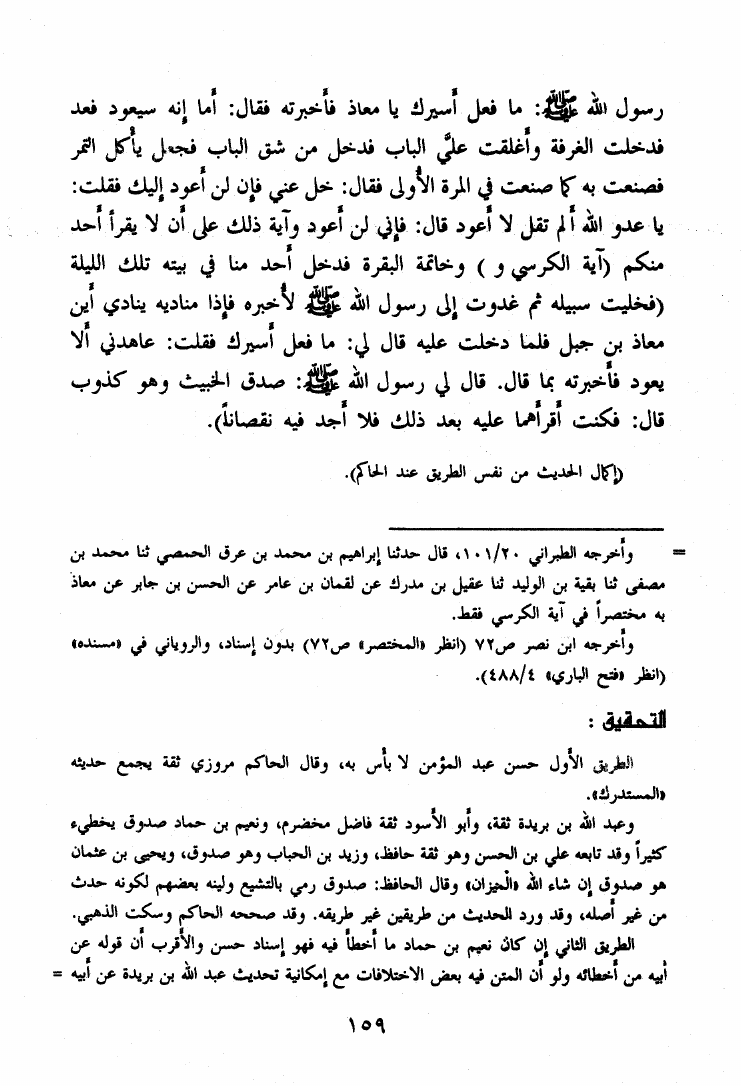 رسول الله ﷺ: ما فعل أسيرك يا معاذ فأخبرته فقال: أما إنه سيعود فعد
فدخلت الغرفة وأغلقت عليَّ الباب فدخل من شق الباب فجعل يأكل التمر
فصنعت به كما صنعت في المرة الأولى فقال: خل عني فإن لن أعود إليك فقلت:
يا عدو الله ألم تقل لا أعود قال: فإني لن أعود وآية ذلك على أن لا يقرأ أحد
منكم (آية الكرسي و ) وخاتمة البقرة فدخل أحد منا في بيته تلك الليلة
(فخليت سبيله ثم غدوت إلى رسول الله ﷺ لأخبره فإذا مناديه ينادي أين
معاذ بن جبل فلما دخلت عليه قال لي: ما فعل أسيرك فقلت: عاهدني ألا
يعود فأخبرته بما قال. قال لي رسول الله ﷺ: صدق الخبيث وهو كذوب
قال: فكنت أقرأهما عليه بعد ذلك فلا أجد فيه نقصاناً).
(إكمال الحديث من نفس الطريق عند الحاكم).
= وأخرجه الطبراني ١٠١/٢٠، قال حدثنا إبراهيم بن محمد بن عرق الحمصي ثنا محمد بن
مصفى ثنا بقية بن الوليد ثنا عقيل بن مدرك عن لقمان بن عامر عن الحسن بن جابر عن معاذ
به مختصراً في آية الكرسي فقط.
وأخرجه ابن نصر ص٧٢ (انظر «المختصر» ص٧٢) بدون إسناد، والروياني في «مسنده»
(انظر «فتح الباري» ٤٨٨/٤).
التحقيق :
الطريق الأول حسن عبد المؤمن لا بأس به، وقال الحاكم مروزي ثقة يجمع حديثه
«المستدرك».
وعبد الله بن بريدة ثقة، وأبو الأسود ثقة فاضل مخضرم، ونعيم بن حماد صدوق يخطيء
كثيراً وقد تابعه علي بن الحسن وهو ثقة حافظ، وزيد بن الحباب وهو صدوق، ويحيى بن عثمان
هو صدوق إن شاء الله «الميزان» وقال الحافظ: صدوق رمي بالتشيع ولينه بعضهم لكونه حدث
من غير أصله، وقد ورد الحديث من طريقين غير طريقه. وقد صححه الحاكم وسكت الذهبي.
الطريق الثاني إن كان نعيم بن حماد ما أخطأ فيه فهو إسناد حسن والأقرب أن قوله عن
أبيه من أخطائه ولو أن المتن فيه بعض الاختلافات مع إمكانية تحديث عبد الله بن بريدة عن أبيه =
١٥٩